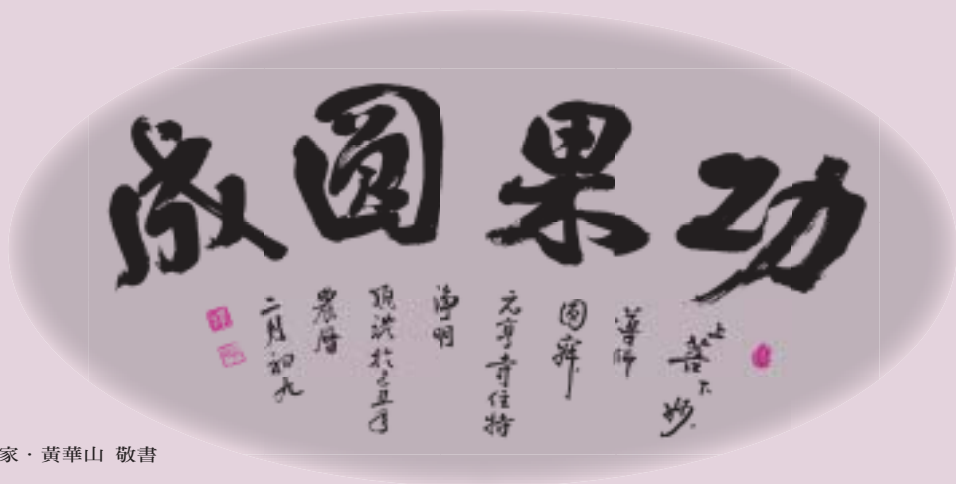 功果圓成
上菩下妙
導師
圓寂
元亨寺住持
淨明
頂禮於己丑年
農曆
二月初九
家·黃華山 敬書